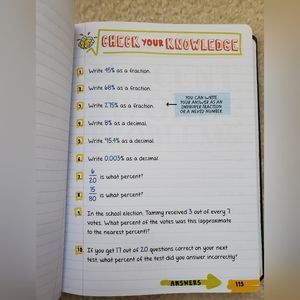 CHECK YOUR KNOWLEDGE
1. Write 45% as a fraction.
2. Write 68% as a fraction.
3. Write 275% as a fraction.
YOU CAN WRITE
YOUR ANSWER AS AN
IMPROPER FRACTION
OR A MIXED NUMBER.
4. Write 8% as a decimal.
5. Write 95.4% as a decimal.
6. Write 0.003% as a decimal.
7. 6/20 is what percent?
8. 15/80 is what percent?
9. In the school election, Tammy received 3 out of every 7
votes. What percent of the votes was this (approximate
to the nearest percent)?
10. If you get 17 out of 20 questions correct on your next
test, what percent of the test did you answer incorrectly?
ANSWERS
115